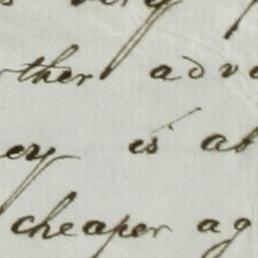 very
ther adv
ery is at
cheaper ag